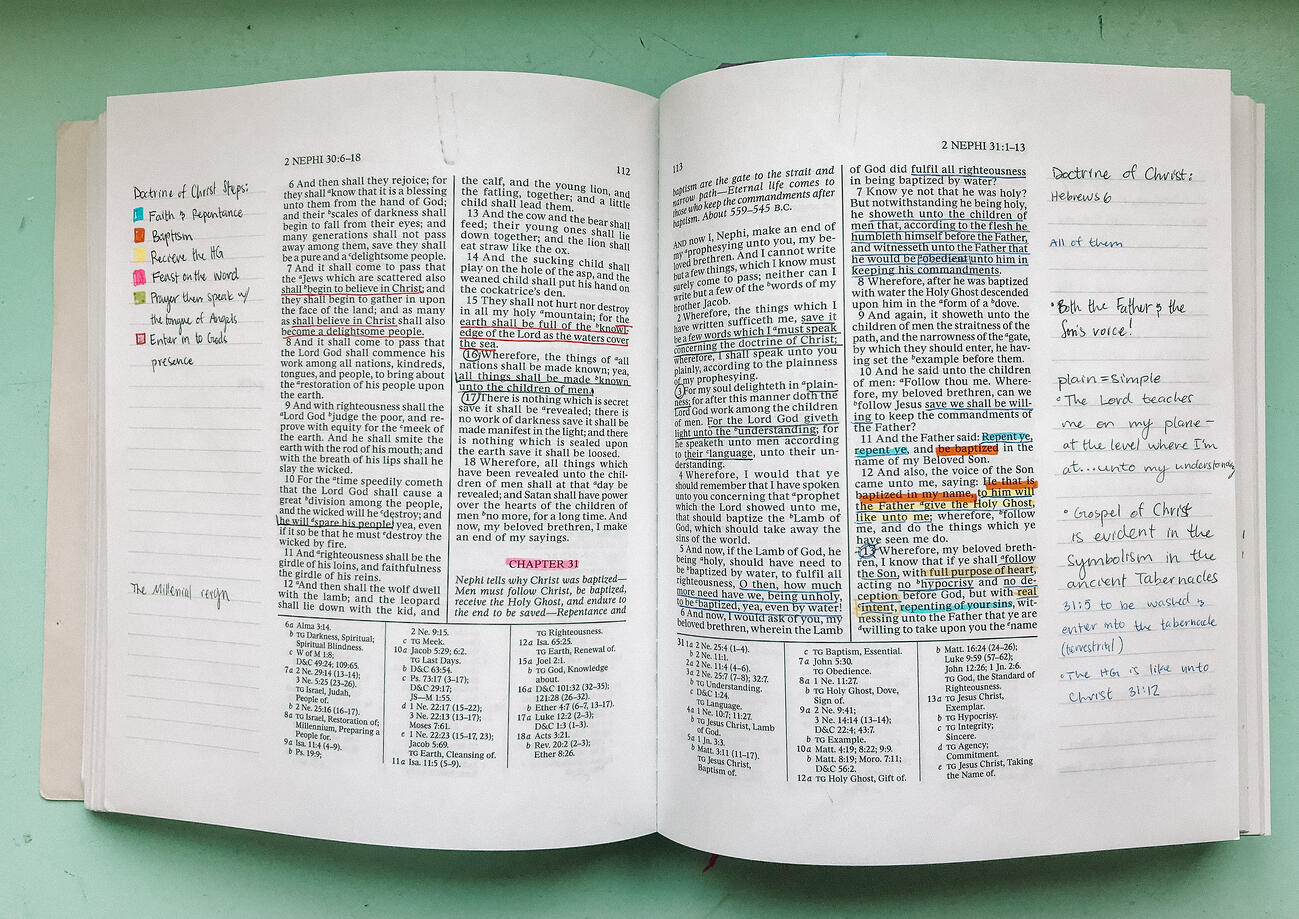 2 NEPHI 30:6–18
112
Doctrine of Christ Steps:
Faith & Repentance
Baptism
Recieve the HG
Feast on the word
Prayer then speak w/
the tongue of Angels
Enter in to Gods
presence
The Millenial reign
6 And then shall they rejoice; for
they shall ᵃknow that it is a blessing
unto them from the hand of God;
and their ᵇscales of darkness shall
begin to fall from their eyes; and
many generations shall not pass
away among them, save they shall
be a pure and a ᶜdelightsome people.
7 And it shall come to pass that
the ᵃJews which are scattered also
shall ᵇbegin to believe in Christ; and
they shall begin to gather in upon
the face of the land; and as many
as shall believe in Christ shall also
become a delightsome people.
8 And it shall come to pass that
the Lord God shall commence his
work among all nations, kindreds,
tongues, and people, to bring about
the ᵃrestoration of his people upon
the earth.
9 And with righteousness shall the
ᵃLord God ᵇjudge the poor, and re-
prove with equity for the ᶜmeek of
the earth. And he shall smite the
earth with the rod of his mouth; and
with the breath of his lips shall he
slay the wicked.
10 For the ᵃtime speedily cometh
that the Lord God shall cause a
great ᵇdivision among the people,
and the wicked will he ᶜdestroy; and
he will ᵈspare his people, yea, even
if it so be that he must ᵉdestroy the
wicked by fire.
11 And ᵃrighteousness shall be the
girdle of his loins, and faithfulness
the girdle of his reins.
12 ᵃAnd then shall the wolf dwell
with the lamb; and the leopard
shall lie down with the kid, and
the calf, and the young lion, and
the fatling, together; and a little
child shall lead them.
13 And the cow and the bear shall
feed; their young ones shall lie
down together; and the lion shall
eat straw like the ox.
14 And the sucking child shall
play on the hole of the asp, and the
weaned child shall put his hand on
the cockatrice's den.
15 They shall not hurt nor destroy
in all my holy ᵃmountain; for the
earth shall be full of the ᵇknowl-
edge of the Lord as the waters cover
the sea.
16 Wherefore, the things of ᵃall
nations shall be made known; yea,
all things shall be made ᵇknown
unto the children of men.
17 There is nothing which is secret
save it shall be ᵃrevealed; there is
no work of darkness save it shall be
made manifest in the light; and there
is nothing which is sealed upon
the earth save it shall be loosed.
18 Wherefore, all things which
have been revealed unto the chil-
dren of men shall at that ᵃday be
revealed; and Satan shall have power
over the hearts of the children of
men ᵇno more, for a long time. And
now, my beloved brethren, I make
an end of my sayings.
CHAPTER 31
Nephi tells why Christ was baptized—
Men must follow Christ, be baptized,
receive the Holy Ghost, and endure to
the end to be saved—Repentance and
6a Alma 3:14.
b TG Darkness, Spiritual;
Spiritual Blindness.
c W of M 1:8;
D&C 49:24; 109:65.
7a 2 Ne. 29:14 (13–14);
3 Ne. 5:25 (23–26).
TG Israel, Judah,
People of.
b 2 Ne. 25:16 (16–17).
8a TG Israel, Restoration of;
Millennium, Preparing a
People for.
9a Isa. 11:4 (4–9).
b Ps. 19:9;
2 Ne. 9:15.
c TG Meek.
10a Jacob 5:29; 6:2.
TG Last Days.
b D&C 63:54.
c Ps. 73:17 (3–17);
D&C 29:17;
JS—M 1:55.
d 1 Ne. 22:17 (15–22);
3 Ne. 22:13 (13–17);
Moses 7:61.
e 1 Ne. 22:23 (15–17, 23);
Jacob 5:69.
TG Earth, Cleansing of.
11a Isa. 11:5 (5–9).
TG Righteousness.
12a Isa. 65:25.
TG Earth, Renewal of.
15a Joel 2:1.
b TG God, Knowledge
about.
16a D&C 101:32 (32–35);
121:28 (26–32).
b Ether 4:7 (6–7, 13–17).
17a Luke 12:2 (2–3);
D&C 1:3 (1–3).
18a Acts 3:21.
b Rev. 20:2 (2–3);
Ether 8:26.
113
2 NEPHI 31:1–13
baptism are the gate to the strait and
narrow path—Eternal life comes to
those who keep the commandments after
baptism. About 559–545 B.C.
AND now I, Nephi, make an end of
my ᵃprophesying unto you, my be-
loved brethren. And I cannot write
but a few things, which I know must
surely come to pass; neither can I
write but a few of the ᵇwords of my
brother Jacob.
2 Wherefore, the things which I
have written sufficeth me, save it
be a few words which I ᵃmust speak
concerning the doctrine of Christ;
wherefore, I shall speak unto you
plainly, according to the plainness
of my prophesying.
3 For my soul delighteth in ᵃplain-
ness; for after this manner doth the
Lord God work among the children
of men. For the Lord God giveth
light unto the ᵇunderstanding; for
he speaketh unto men according
to their ᶜlanguage, unto their un-
derstanding.
4 Wherefore, I would that ye
should remember that I have spoken
unto you concerning that ᵃprophet
which the Lord showed unto me,
that should baptize the ᵇLamb of
God, which should take away the
sins of the world.
5 And now, if the Lamb of God, he
being ᵃholy, should have need to
be ᵇbaptized by water, to fulfil all
righteousness, O then, how much
more need have we, being unholy,
to be ᶜbaptized, yea, even by water!
6 And now, I would ask of you, my
beloved brethren, wherein the Lamb
of God did fulfil all righteousness
in being baptized by water?
7 Know ye not that he was holy?
But notwithstanding he being holy,
he showeth unto the children of
men that, according to the flesh he
humbleth himself before the Father,
and witnesseth unto the Father that
he would be ᵃobedient unto him in
keeping his commandments.
8 Wherefore, after he was baptized
with water the Holy Ghost descended
upon him in the ᵃform of a ᵇdove.
9 And again, it showeth unto the
children of men the straitness of the
path, and the narrowness of the ᵃgate,
by which they should enter, he hav-
ing set the ᵇexample before them.
10 And he said unto the children
of men: ᵃFollow thou me. Where-
fore, my beloved brethren, can we
ᵇfollow Jesus save we shall be will-
ing to keep the commandments of
the Father?
11 And the Father said: Repent ye,
repent ye, and be baptized in the
name of my Beloved Son.
12 And also, the voice of the Son
came unto me, saying: He that is
baptized in my name, to him will
the Father ᵃgive the Holy Ghost,
like unto me; wherefore, ᵇfollow
me, and do the things which ye
have seen me do.
13 Wherefore, my beloved breth-
ren, I know that if ye shall ᵃfollow
the Son, with full purpose of heart,
acting no ᵇhypocrisy and no de-
ception before God, but with real
ᶜintent, repenting of your sins, wit-
nessing unto the Father that ye are
ᵈwilling to take upon you the ᵉname
31 1a 2 Ne. 25:4 (1–4).
b 2 Ne. 11:1.
2a 2 Ne. 11:4 (4–6).
3a 2 Ne. 25:7 (7–8); 32:7.
b TG Understanding.
c D&C 1:24.
TG Language.
4a 1 Ne. 10:7; 11:27.
b TG Jesus Christ, Lamb
of God.
5a 1 Jn. 3:3.
b Matt. 3:11 (11–17).
TG Jesus Christ,
Baptism of.
c TG Baptism, Essential.
7a John 5:30.
TG Obedience.
8a 1 Ne. 11:27.
b TG Holy Ghost, Dove,
Sign of.
9a 2 Ne. 9:41;
3 Ne. 14:14 (13–14);
D&C 22:4; 43:7.
b TG Example.
10a Matt. 4:19; 8:22; 9:9.
b Matt. 8:19; Moro. 7:11;
D&C 56:2.
12a TG Holy Ghost, Gift of.
b Matt. 16:24 (24–26);
Luke 9:59 (57–62);
John 12:26; 1 Jn. 2:6.
TG God, the Standard of
Righteousness.
13a TG Jesus Christ,
Exemplar.
b TG Hypocrisy.
c TG Integrity;
Sincere.
d TG Agency;
Commitment.
e TG Jesus Christ, Taking
the Name of.
Doctrine of Christ:
Hebrews 6
All of them
• Both the Father & the
Son's voice!
plain = simple
• The Lord teaches
me on my plane –
at the level where I'm
at...unto my understanding
• Gospel of Christ
is evident in the
Symbolism in the
ancient Tabernacles
31:5 to be washed &
enter into the tabernacle
(terrestrial)
• The HG is like unto
Christ 31:12